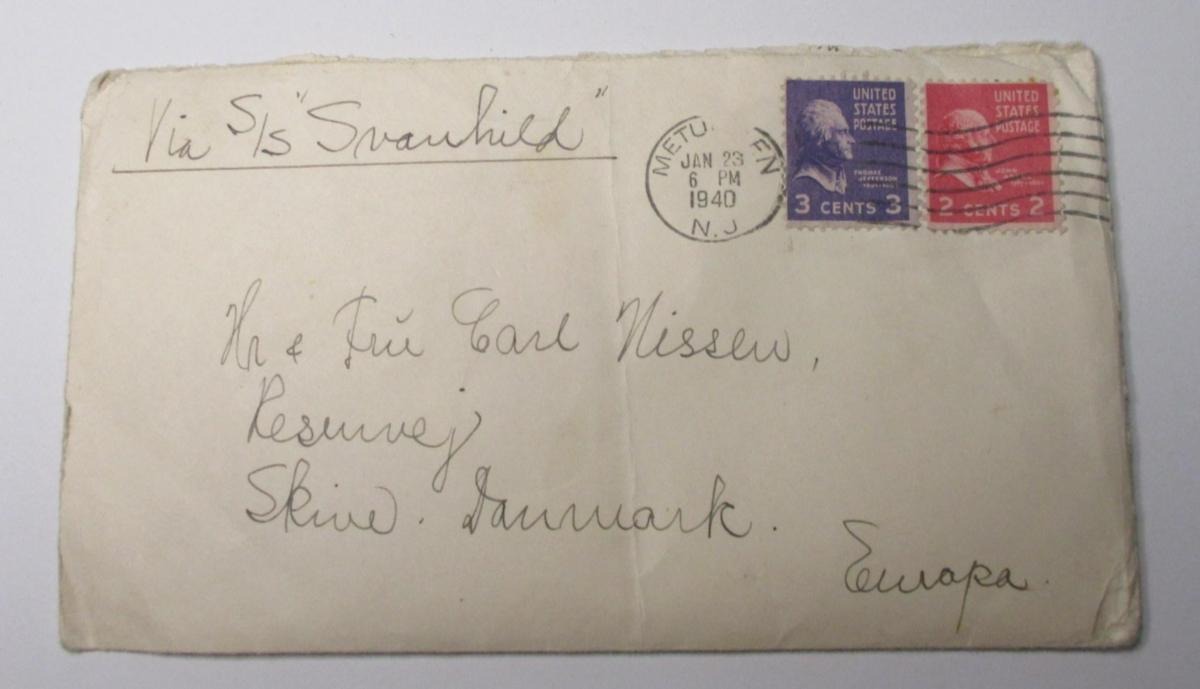 Via S/S "Svanhild"
METU EN
JAN 23
6 PM
1940
N.J
UNITED
STATES
POSTAGE
THOMAS
JEFFERSON
3 CENTS 3
UNITED
STATES
POSTAGE
JOHN
2 CENTS 2
Hr & Frü Carl Nissen,
Resenvej
Skive. Danmark.
Europa.